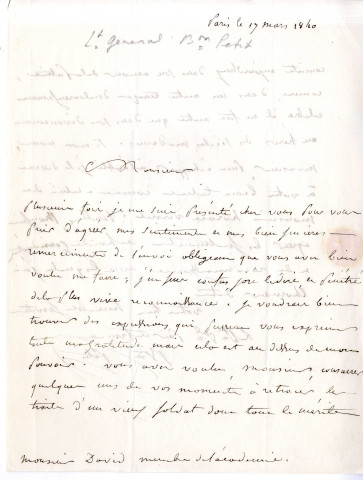 Paris le 17 mars 1840
Lt général Bon Petit
Monsieur
plusieur fois je me suis présenté chez vous pour vous
prier d'agréer mes sentiments et mes bien sincères
remerciments de l'envoi obligeant que vous avez bien
voulu me faire; j'en suis confus, je le dirai, et pénétré
de la plus vive reconnaissance, je voudrais bien
trouver des expressions qui pussent vous exprimer
toute ma gratitude mais cela est au dessus de mon
pouvoir. vous avez voulu, monsieur, consacrer
quelques uns de vos moments à retracer les
traits d'un vieux soldat dont tout le mérite
monsieur David membre de l'académie.